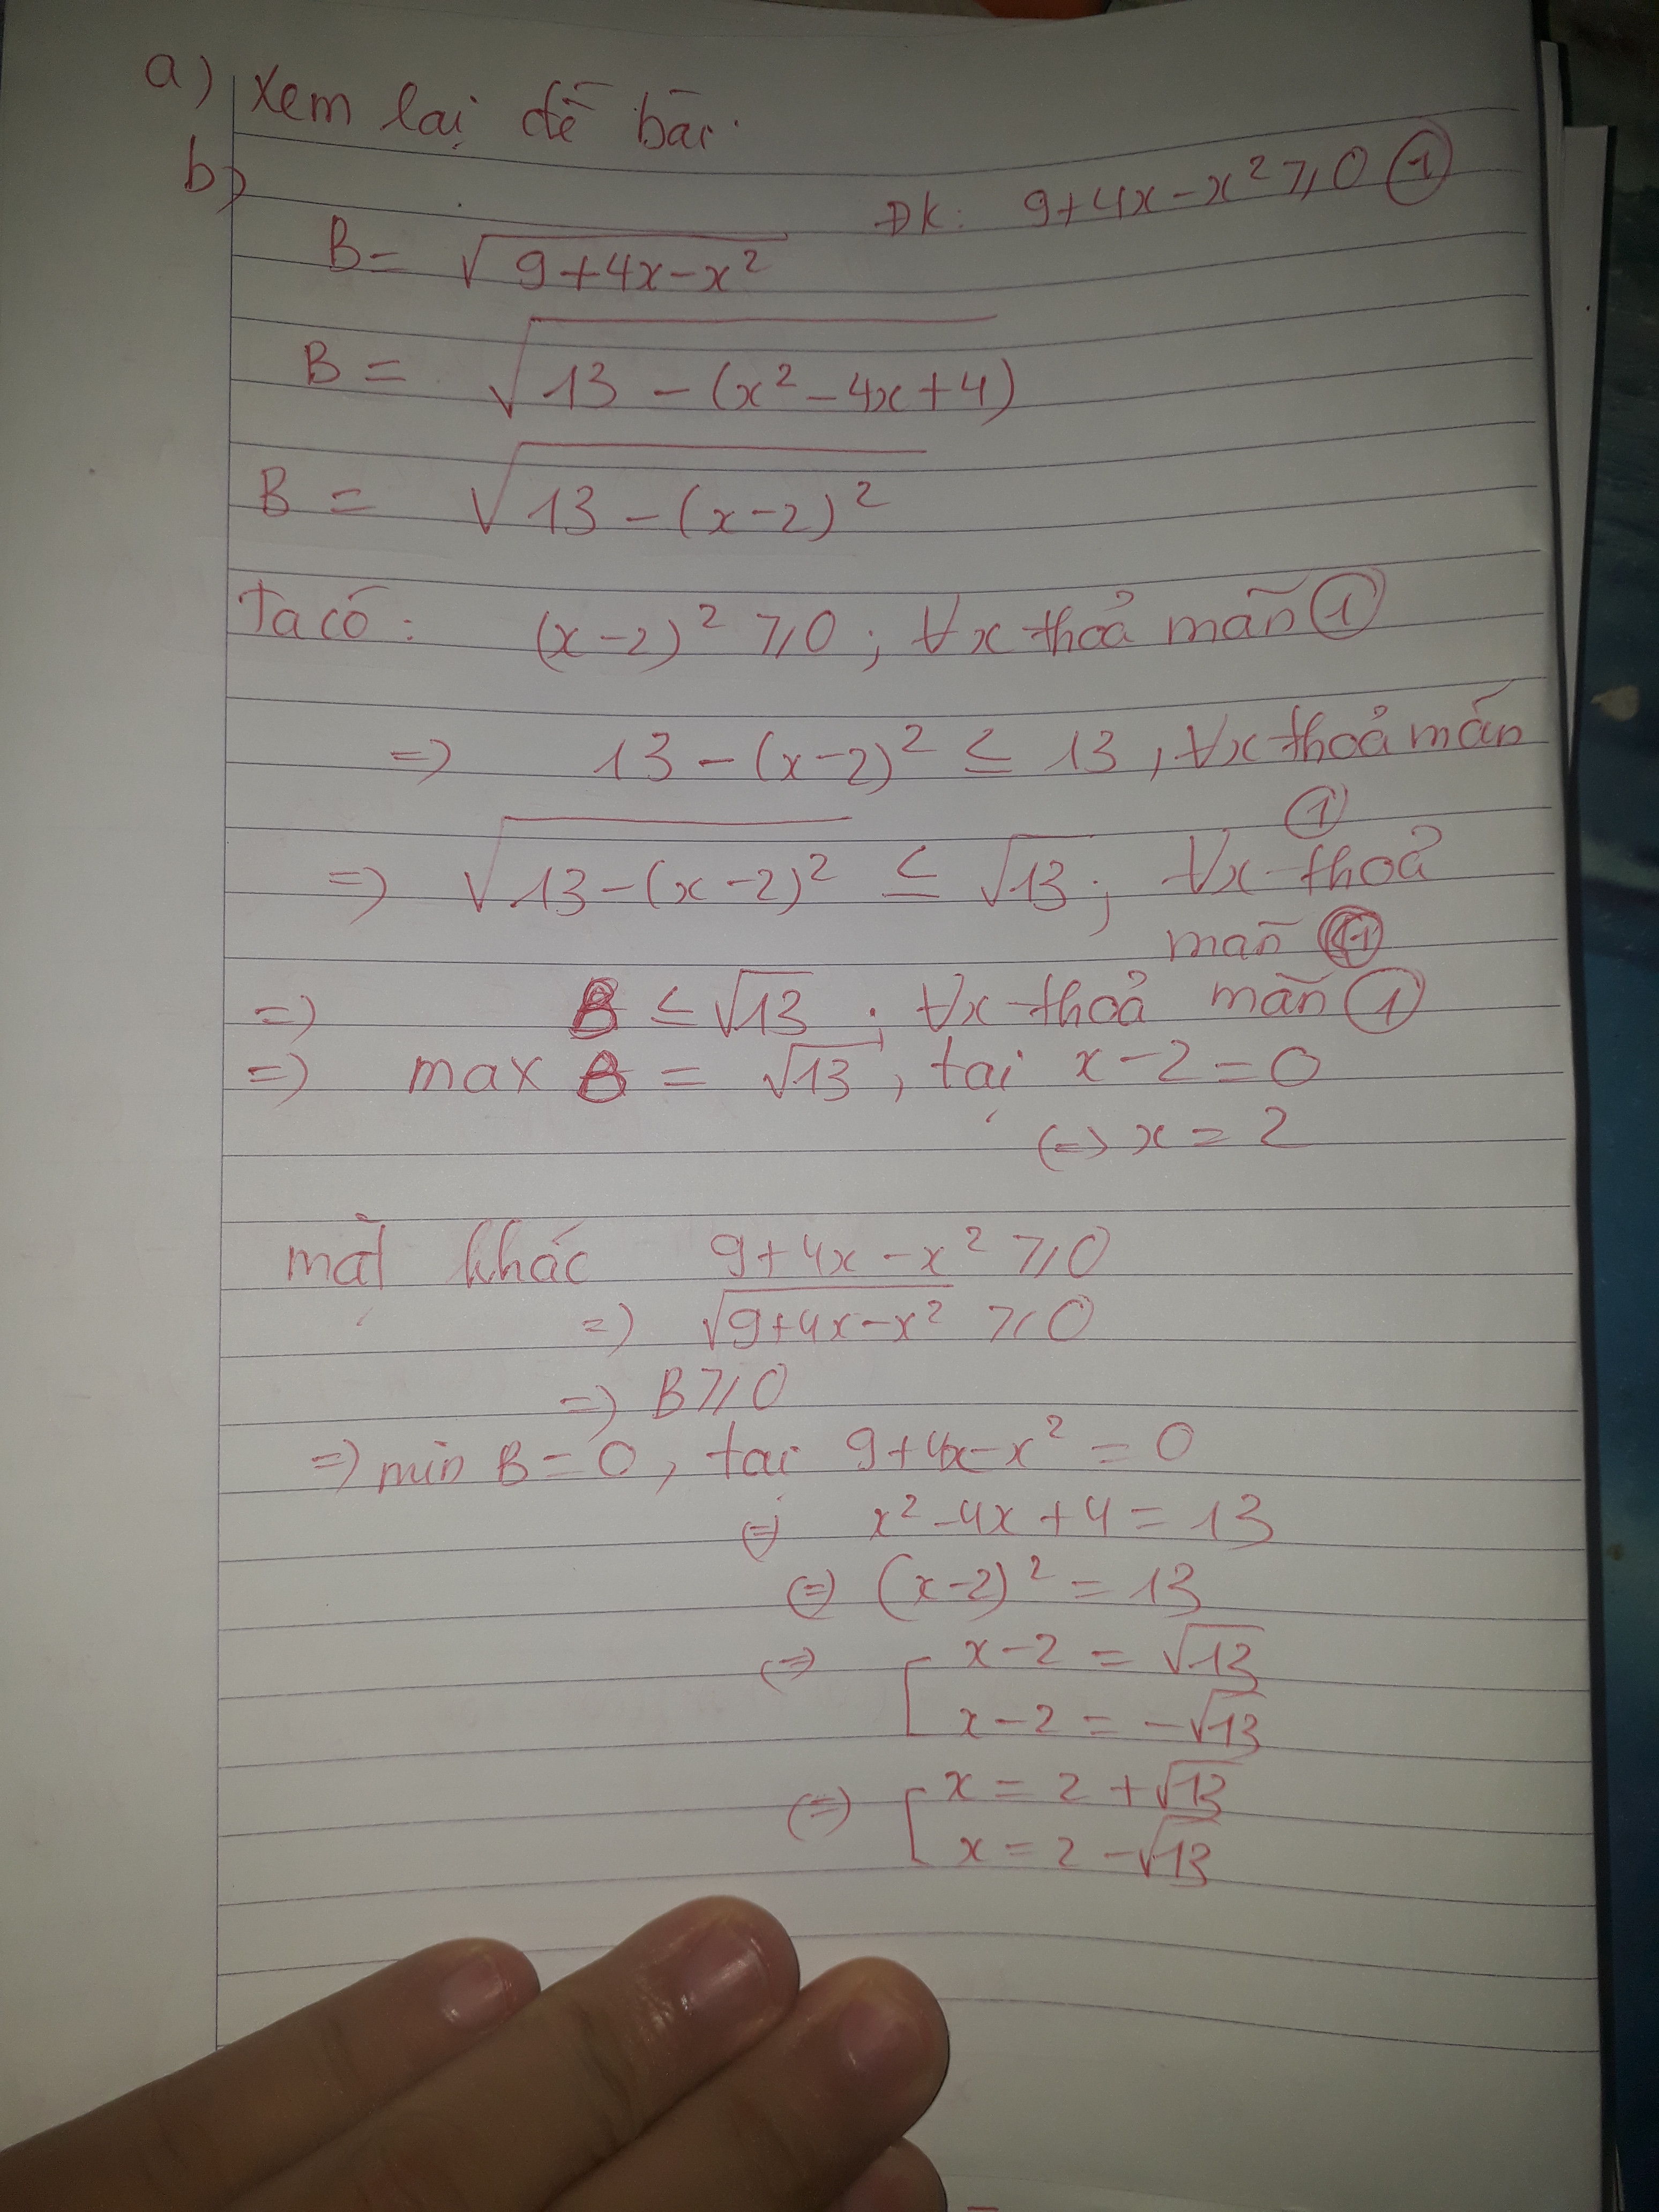 a) Xem lại đề bài.
b)
ĐK: 9+4x-x² ≥ 0 ①
B = √(9+4x-x²)
B = √(13-(x²-4x+4))
B = √(13-(x-2)²)
Ta có: (x-2)² ≥ 0; ∀x thoả mãn ①
=> 13-(x-2)² ≤ 13, ∀x thoả mãn
①
=> √(13-(x-2)²) ≤ √13; ∀x thoả
mãn ①
=> B ≤ √13; ∀x thoả mãn ①
=> max B = √13, tại x-2=0
<=> x = 2
mặt khác 9+4x-x² ≥ 0
=> √(9+4x-x²) ≥ 0
=> B ≥ 0
=> min B = 0, tại 9+4x-x² = 0
<=> x²-4x+4 = 13
<=> (x-2)² = 13
<=> [ x-2 = √13
x-2 = -√13
<=> [ x = 2+√13
x = 2-√13